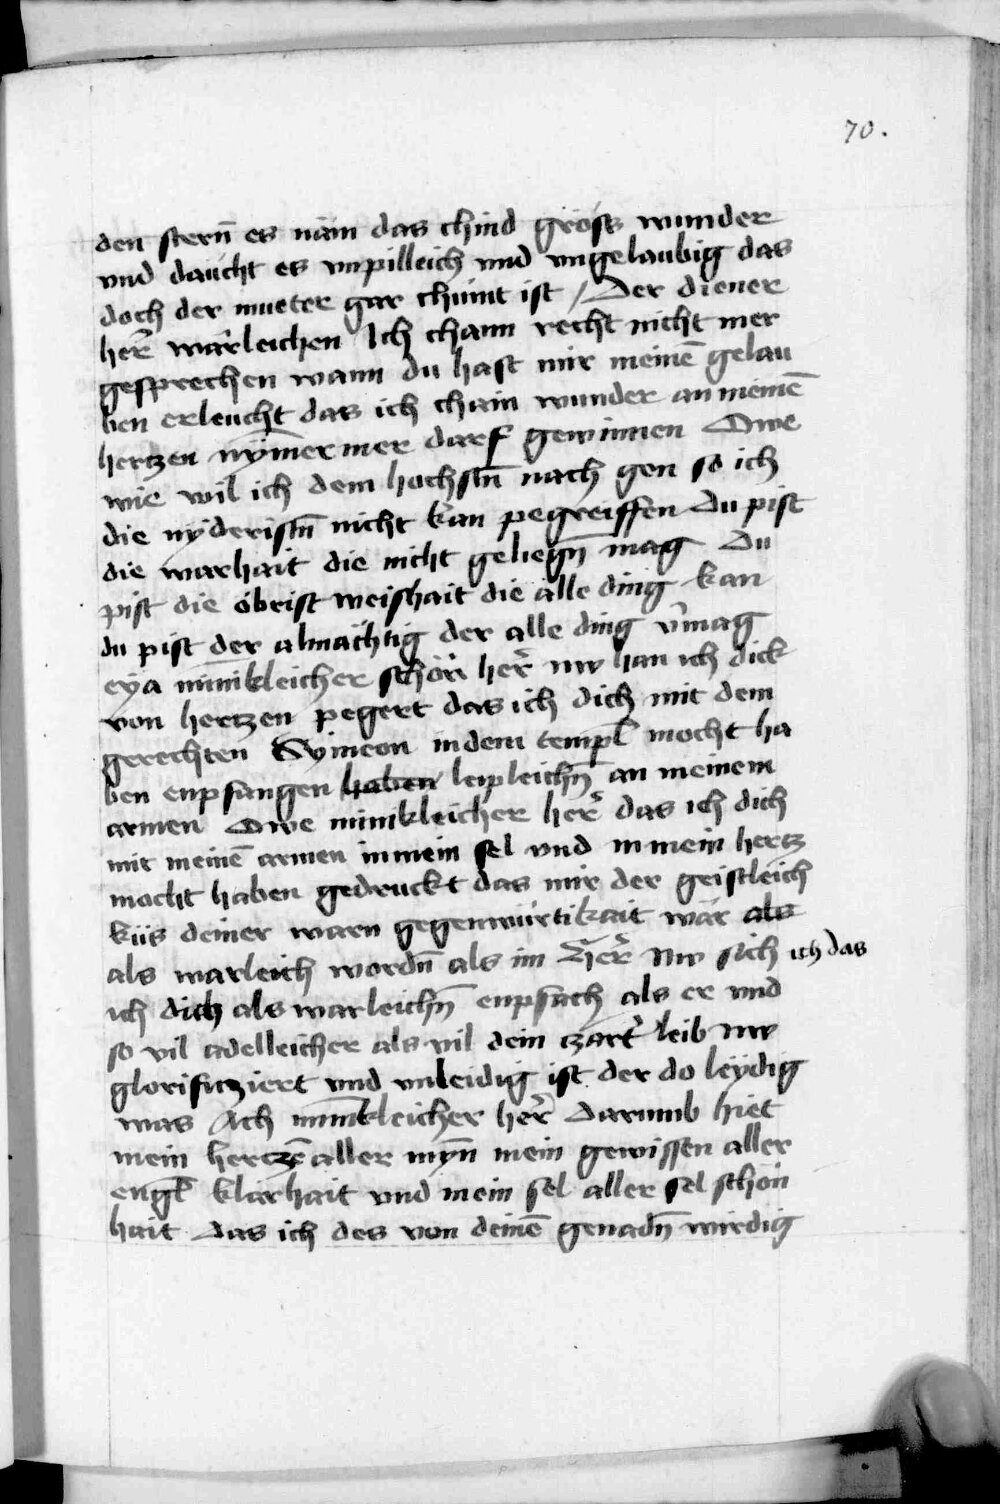 70.
den stern̄ es näm das chind gröss wunder
vnd daucht es vnpilleich vnd vngelaubig das
doch der mueter gar chúnt ist / Der diener
her̄ wärleichen Ich chann recht nicht mer
gesprechen wann du hast mir meinē gelau
ben erleucht das ich chain wunder an meinē
hertzen nym̄er mer darf gewinnen Owe
wie wil ich dem hochstn̄ nach gen so ich
die nyderistn̄ nicht kan pegreiffen Du pist
die warhait die nicht geliegn̄ mag Du
pist die óbrist weishait die alle ding kan
du pist der almächtig der alle ding v̄mag
eya min̄ikleicher schön her̄ nw han ich dick
von hertzen pegert das ich dich mit dem
gerechten Symeon in dem templ̄ mocht ha
ben enpfangen haben leipleichn̄ an meinem
armen Owe minikleicher her̄ das ich dich
mit meinē armen in mein sel vnd in mein hertz
mocht haben gedruckt das mir der geistleich
küs deiner warn gegenwürtikait wär als
als warleich wordn̄ als im Her̄ Nw sich ich das
ich dich als warleichn̄ enpfach als er vnd
so vil adelleicher als vil dein zart̄ leib nw
glorifitziert vnd vnleidig ist der do leydig
was Ach min̄ikleicher her̄ Darumb hiet
mein hertzē aller myn̄ mein gewissen aller
engl̄ klärhait vnd mein sel aller sel schön
hait das ich des von deinē genadn̄ wirdig